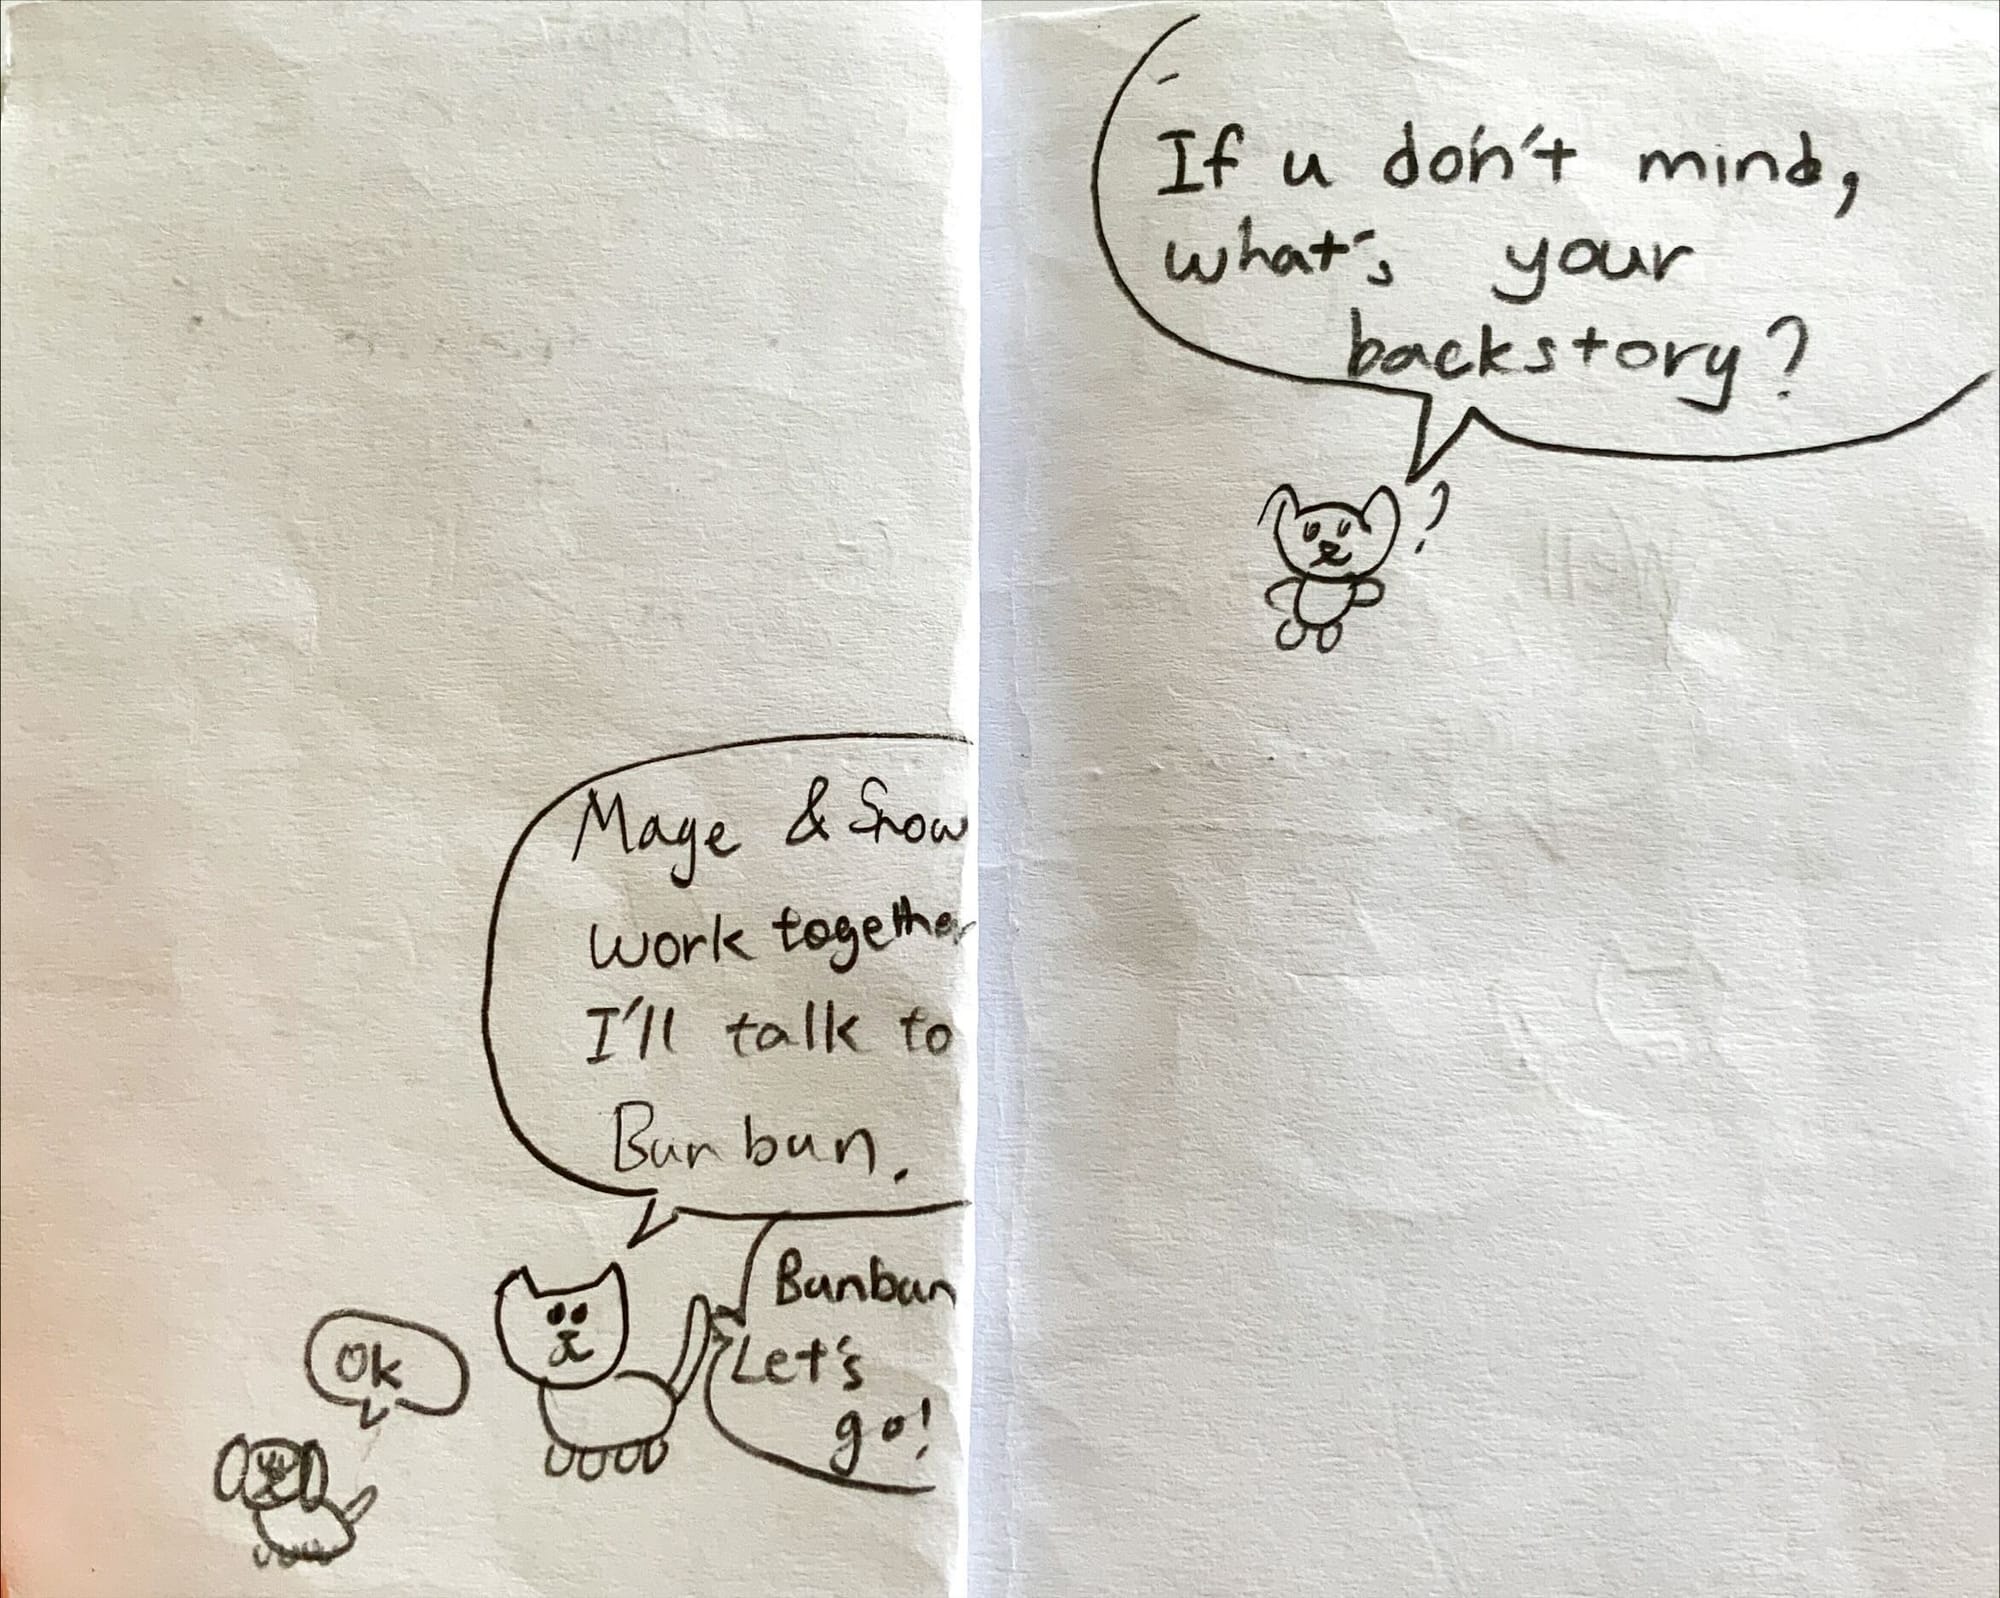 Mage & Snow
work together
I'll talk to
Bunbun.
Bunbun
Let's
go!
Ok
If u don't mind,
what's your
backstory?
?
Well